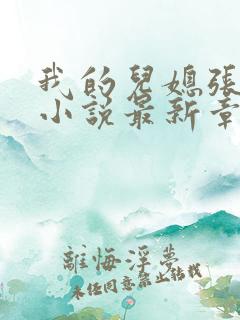 我的兒媳張
小说最新章
離悔淫夢
未任同意禁止轉載